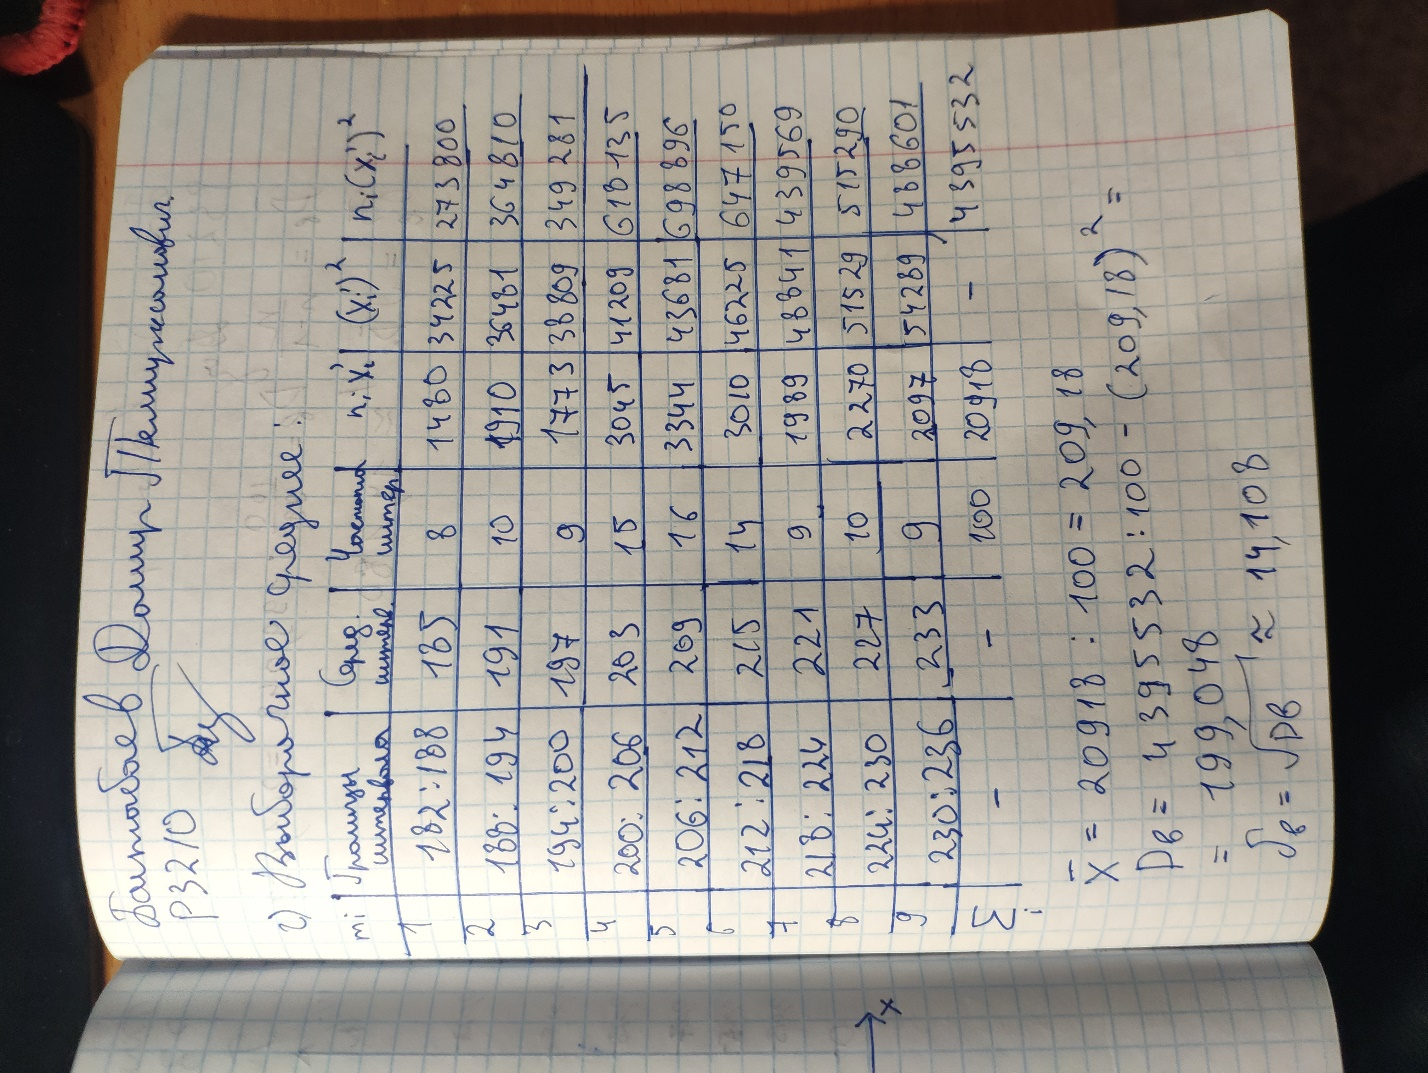 Баитобаев Дамир
Р3210
г) Выборочное среднее:
mi | Границы интервала | Серед. интерв | Частота интер. | ni xi' | (xi')² | ni(xi')²
1 | 182:188 | 185 | 8 | 1480 | 34225 | 273800
2 | 188:194 | 191 | 10 | 1910 | 36481 | 364810
3 | 194:200 | 197 | 9 | 1773 | 38809 | 349281
4 | 200:206 | 203 | 15 | 3045 | 41209 | 618135
5 | 206:212 | 209 | 16 | 3344 | 43681 | 698896
6 | 212:218 | 215 | 14 | 3010 | 46225 | 647150
7 | 218:224 | 221 | 9 | 1989 | 48841 | 439569
8 | 224:230 | 227 | 10 | 2270 | 51529 | 515290
9 | 230:236 | 233 | 9 | 2097 | 54289 | 488601
Σ | – | – | 100 | 20918 | – | 4395532
x̄ = 20918 : 100 = 209,18
Dв = 4395532 : 100 - (209,18)² =
= 199,048
σв = √Dв ≈ 14,108
x